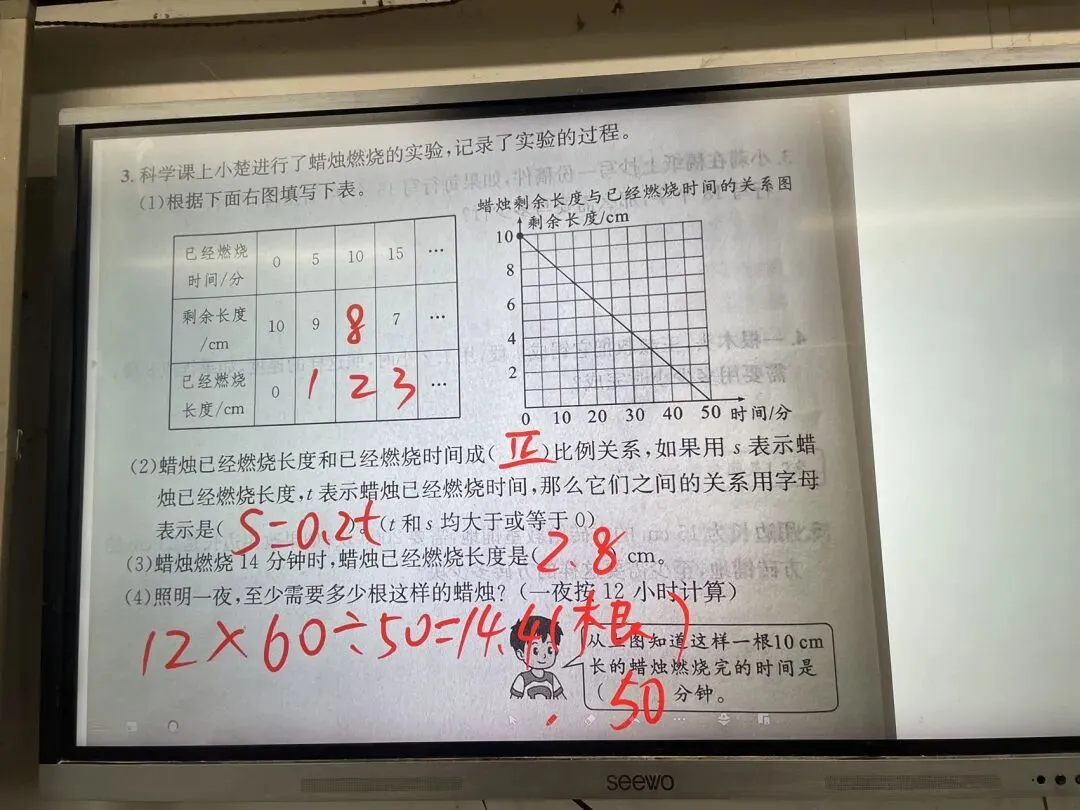 3. 科学课上小楚进行了蜡烛燃烧的实验,记录了实验的过程。
(1)根据下面右图填写下表。
已经燃烧时间/分 0 5 10 15 …
剩余长度/cm 10 9 8 7 …
已经燃烧长度/cm 0 1 2 3 …
蜡烛剩余长度与已经燃烧时间的关系图
剩余长度/cm
10
8
6
4
2
0 10 20 30 40 50 时间/分
(2)蜡烛已经燃烧长度和已经燃烧时间成(正)比例关系,如果用 s 表示蜡
烛已经燃烧长度,t 表示蜡烛已经燃烧时间,那么它们之间的关系用字母
表示是( S=0.2t )。(t 和 s 均大于或等于 0)
(3)蜡烛燃烧 14 分钟时,蜡烛已经燃烧长度是( 2.8 ) cm。
(4)照明一夜,至少需要多少根这样的蜡烛?(一夜按 12 小时计算)
12×60÷50=14.4(根)
从上图知道这样一根10 cm
长的蜡烛燃烧完的时间是
( 50 )分钟。
seewo